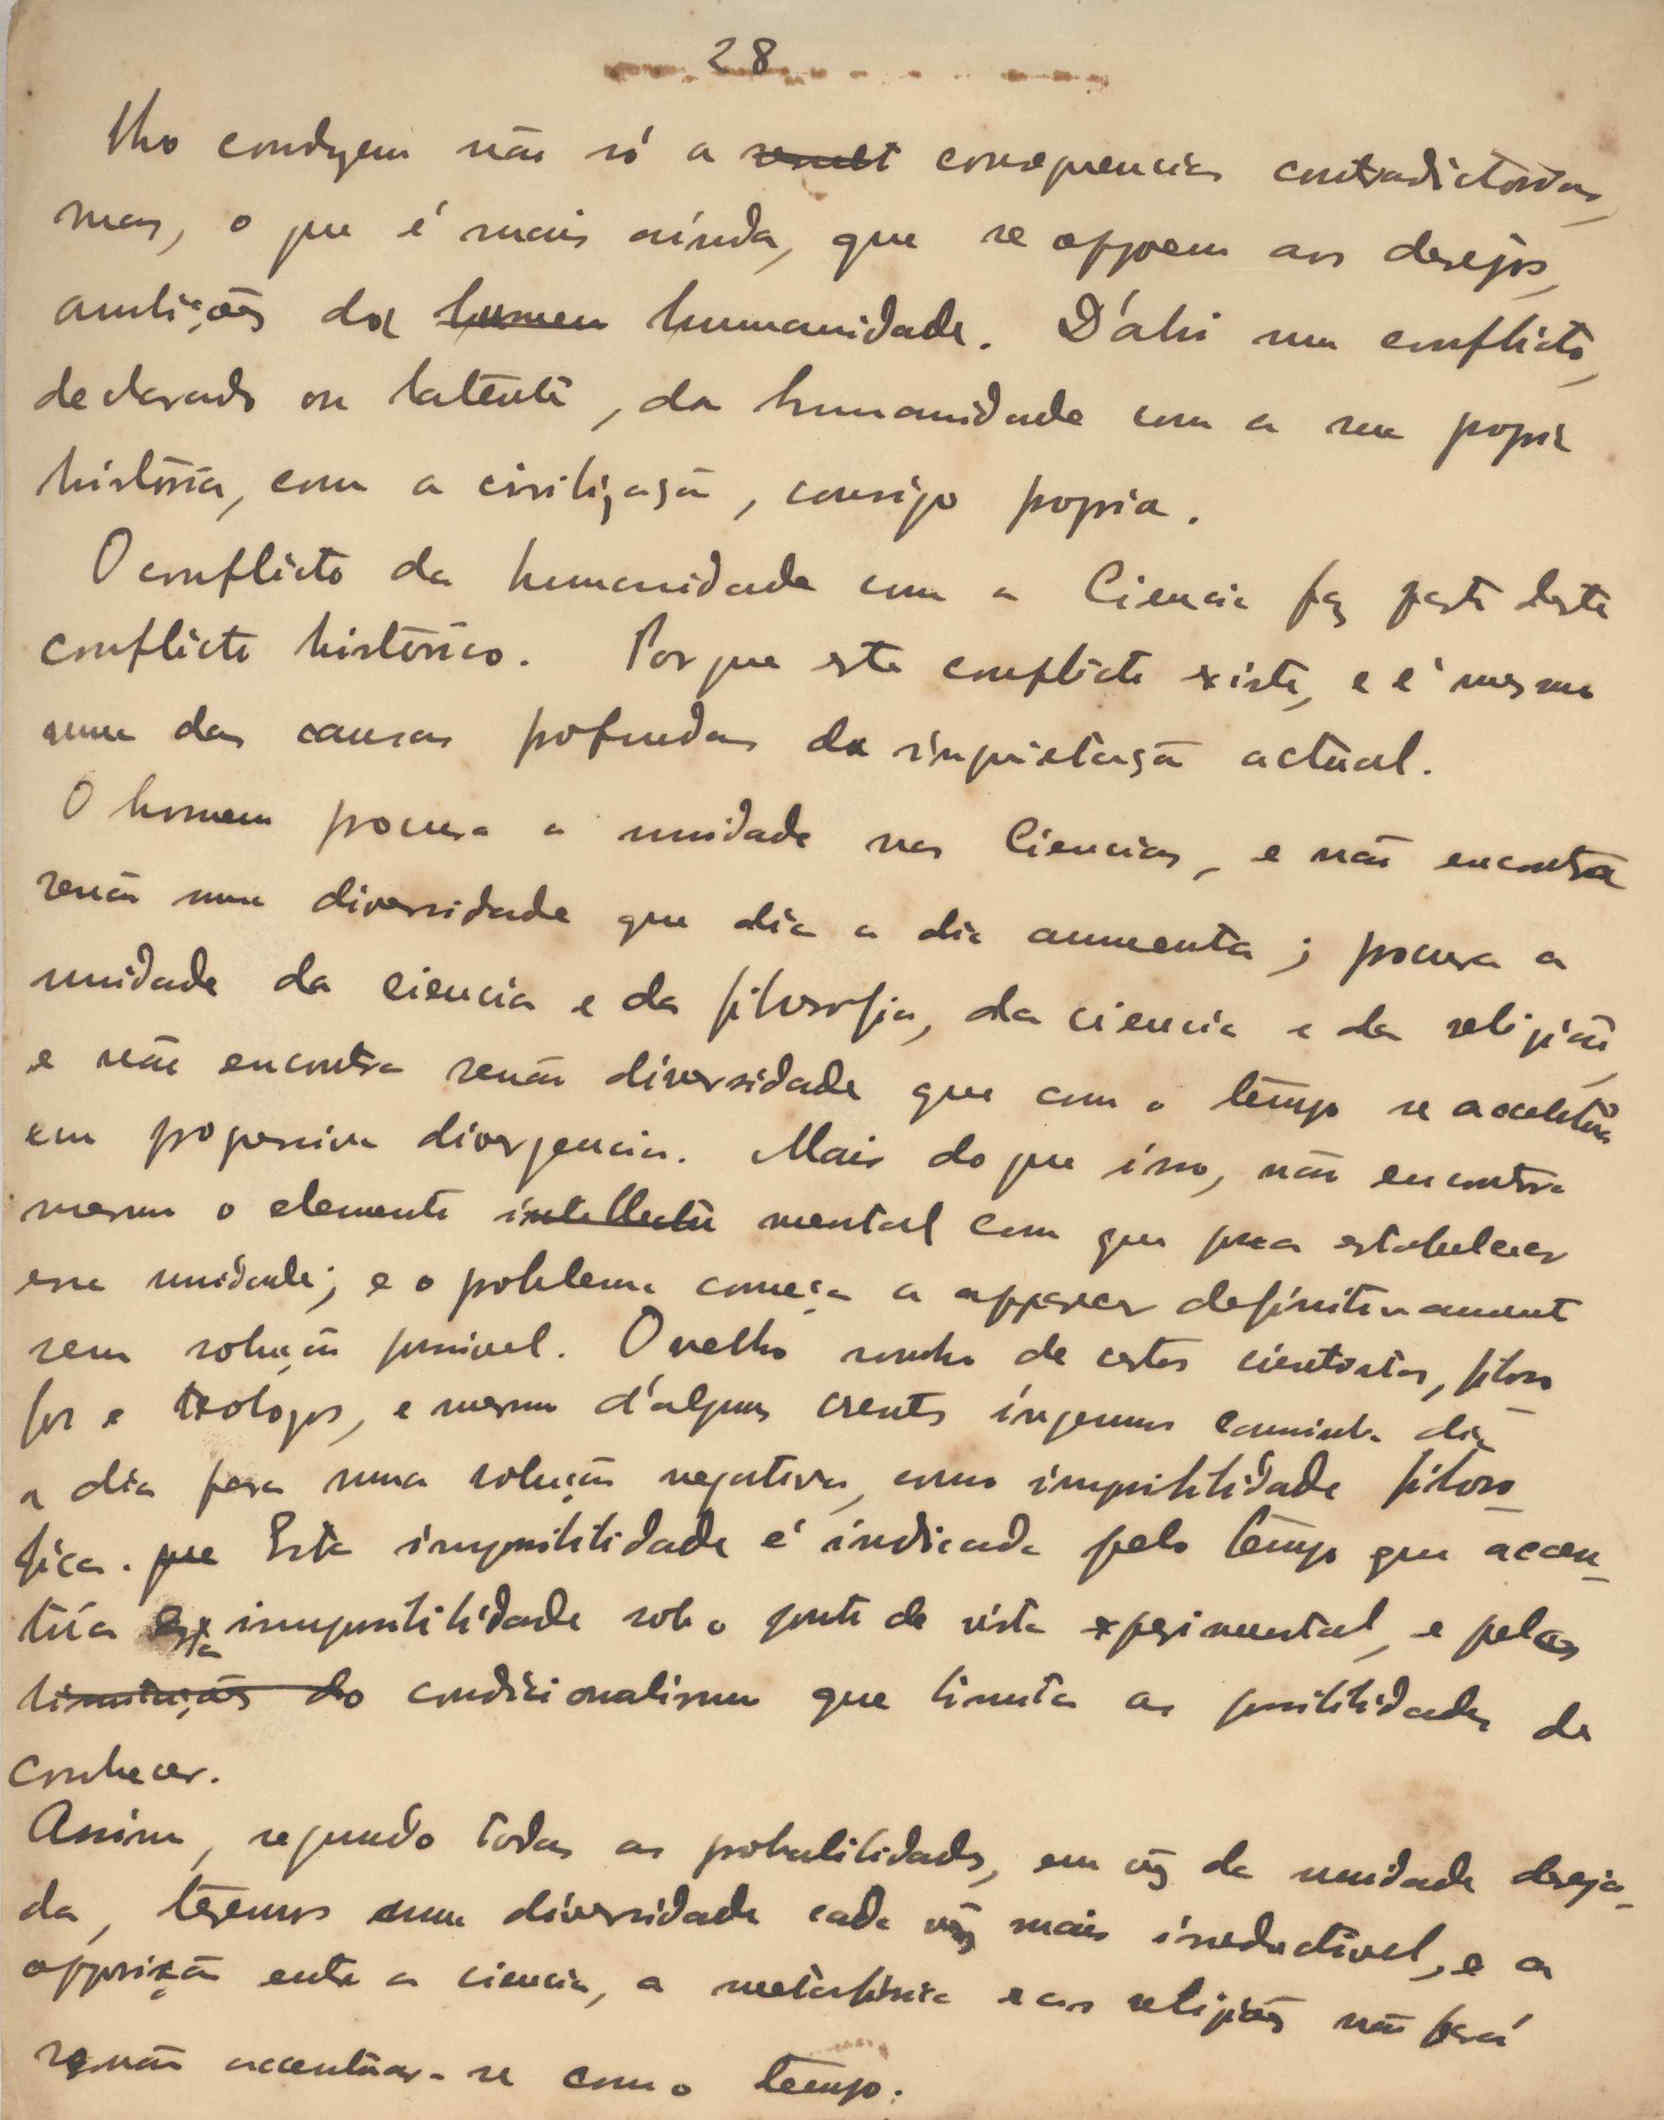 28
lho conduzem não só a result consequencias contradictorias,
mas, o que é mais ainda, que se oppoem aos desejos,
ambições da homem humanidade. D'ahi um conflicto,
declarado ou latente, da humanidade com a sua propria
história, com a civilização, consigo propria.
O conflicto da humanidade com a Ciencia faz parte deste
conflicto histórico. Porque este conflicto existe, e é mesmo
uma das causas profundas da inquietação actual.
O homem procura a unidade nas Ciencias, e não encontra
senão uma diversidade que dia a dia aumenta; procura a
unidade da ciencia e da filosofia, da ciencia e da religião,
e não encontra senão diversidade que com o tempo se accentua
em progressiva divergencia. Mais do que isso, não encontra
mesmo o elemento intellectu mental com que possa estabelecer
essa unidade; e o problema começa a apparecer definitivamente
sem solução possivel. O velho sonho de certos cientistas, filoso
fos e teologos, e mesmo d'alguns crentes ingenuos caminha dia
a dia para uma solução negativa, como impossibilidade filoso-
fica. que Esta impossibilidade é indicada pelo tempo que accen-
túa esta impossibilidade sob o ponto de vista experimental, e pelas
limitações do condicionalismo que limita as possibilidades de
conhecer.
Assim, segundo todas as probabilidades, em vêz da unidade deseja-
da, teremos uma diversidade cada vêz mais ireductivel, e a
opposição entre a ciencia, a metafisica e as religiões não fará
senão accentuar-se com o tempo.